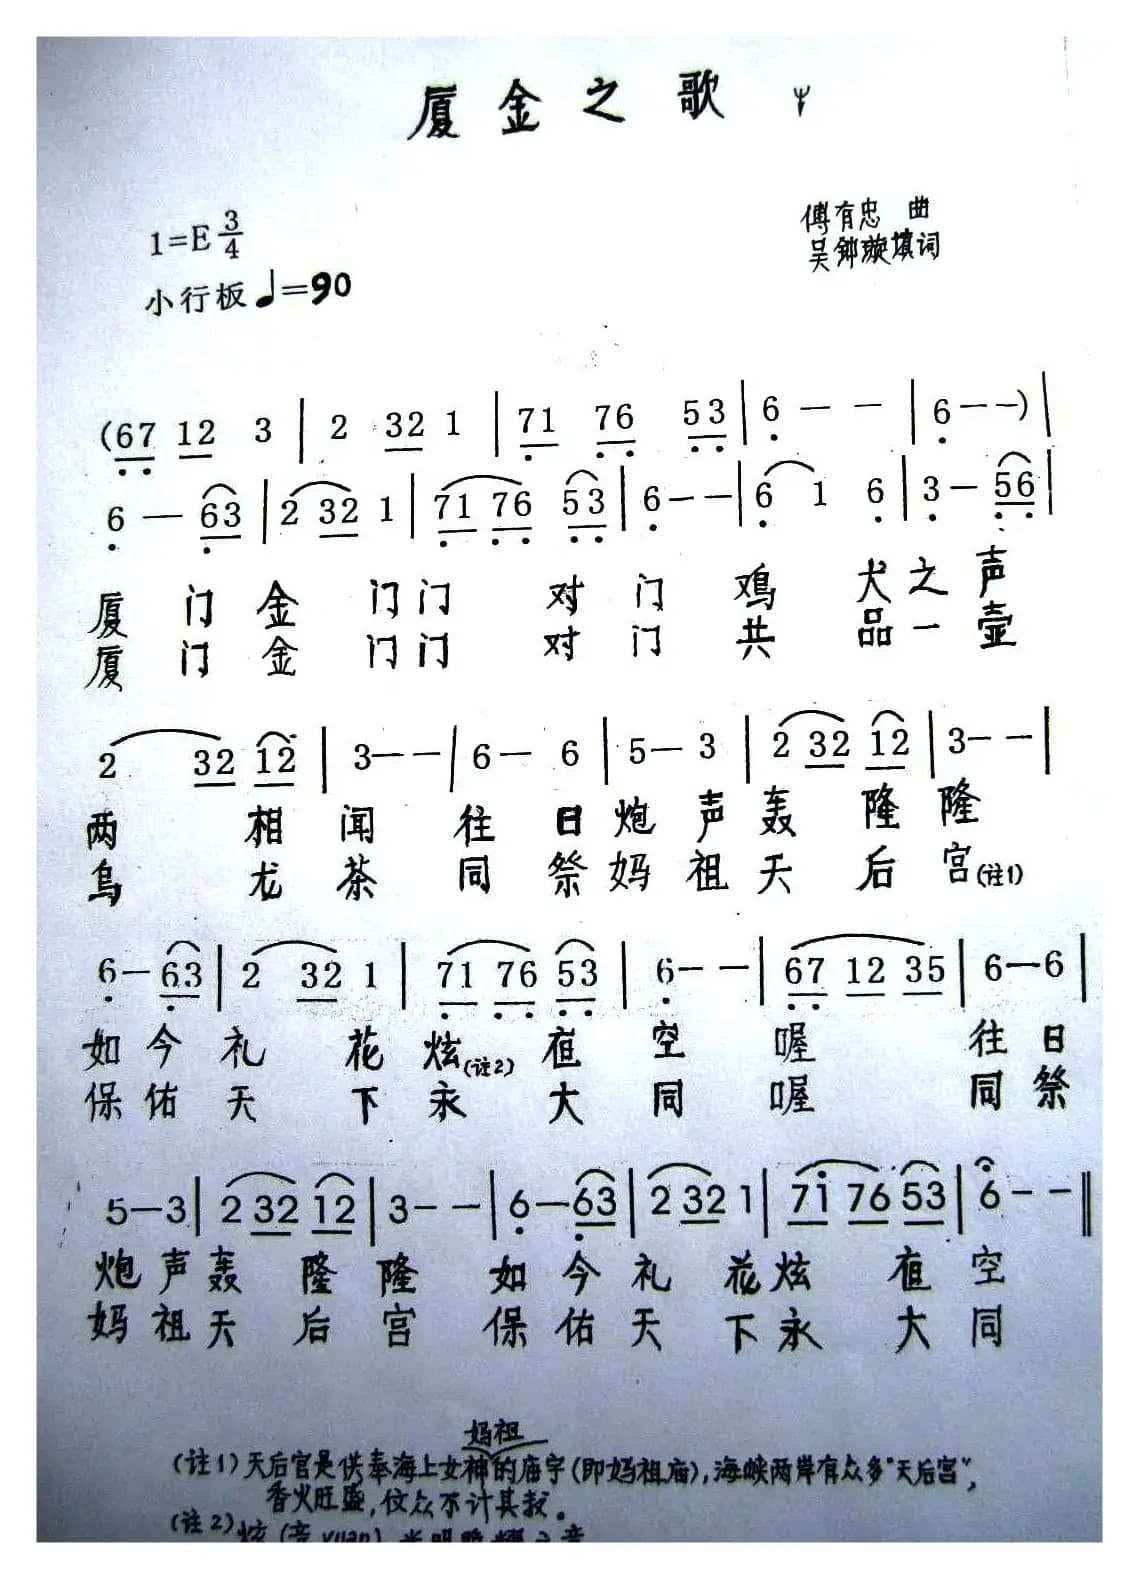 厦金之歌
1=E 3/4
傅有忠 曲
吴 璇填词
小行板 ♩=90
(67 12 3 | 2 32 1 | 71 76 53 | 6 - - | 6 - - ) |
6 — 63 | 2 32 1 | 71 76 53 | 6 - - | 6 1 6 | 3 - 56 |
厦门金门门对门鸡犬之声
厦门金门门对门共品一壶
2 32 12 | 3 - - | 6 - 6 | 5 - 3 | 2 32 12 | 3 - - |
两相闻往日炮声轰隆隆
乌龙茶同祭妈祖天后宫(注1)
6 - 63 | 2 32 1 | 71 76 53 | 6 - - | 67 12 35 | 6 - 6 |
如今礼花炫(注2)夜空喔往日
保佑天下永大同喔同祭
5 - 3 | 2 32 12 | 3 - - | 6 - 63 | 2 32 1 | 71 76 53 | 6 - - ‖
炮声轰隆隆如今礼花炫夜空
妈祖天后宫保佑天下永大同
妈祖
(注1)天后宫是供奉海上女神的庙宇(即妈祖庙),海峡两岸有众多"天后宫",
香火旺盛,信众不计其数。
(注2)炫(音yuan)